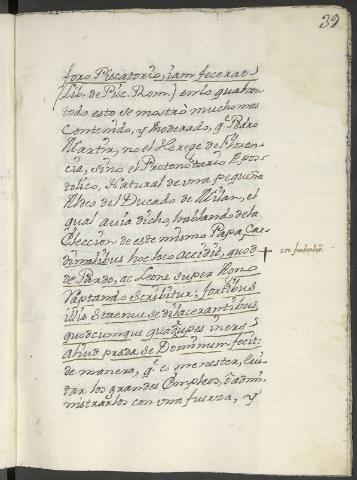 39
foro Piscatorio, iam fecerat
(Lib. de Pisc. Rom.) en lo qual con
todo esto se mostrò mucho mas
Contenido, y Moderado, q.e Pedro
Martir, no el Herege de Floren-
cia, sino el Protonotario Apos-
tolico, Natural de vna pequeña
Aldea del Ducado de Milan, el
qual auia dicho, hablando de la
Eleccion de este mismo Papa, Car-
dinalibus hoc loco accidit, quod
de Pardo, ac Leone super Hono
Raptando Scribitur: fortibus
illis Strenue se dilacerantibus,
quodcumque quadrupes iners
Aliud prada se Dominum fecit:
de manera, q.e es menester, cui-
dar los grandes Empleos, ò admi-
nistrarlos con vna fuerza, y